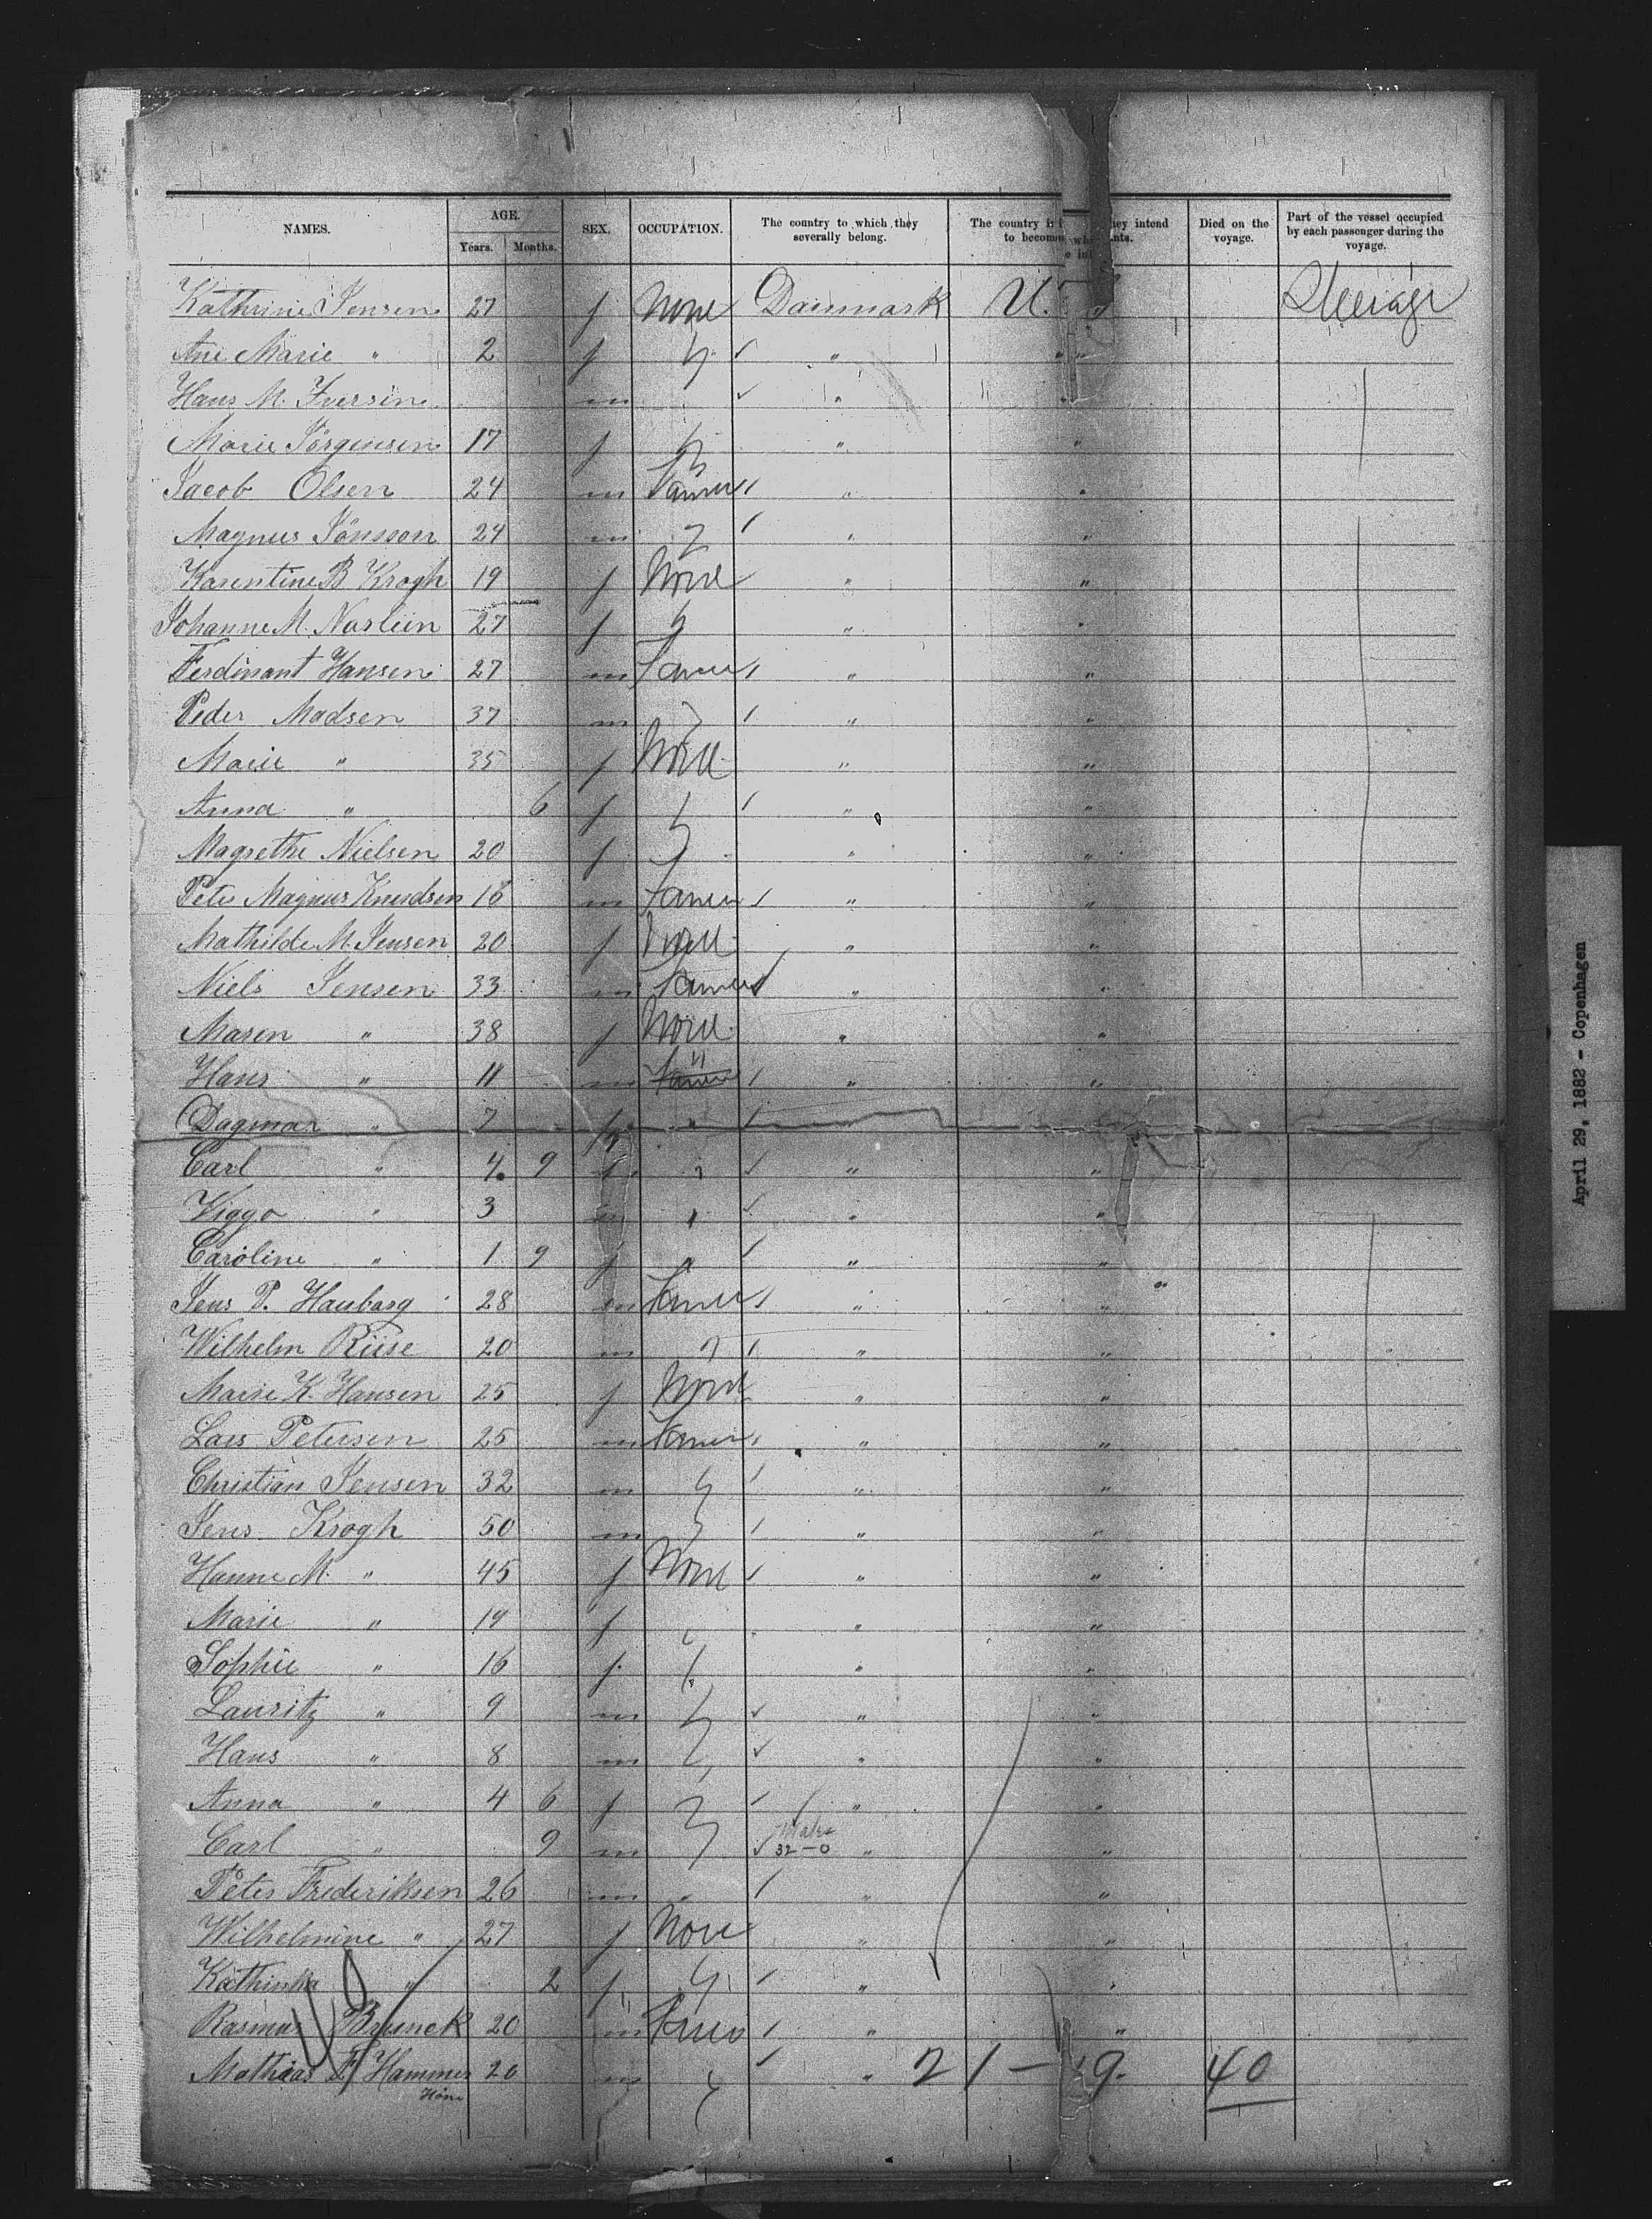 NAMES. AGE. SEX. OCCUPATION. The country to which they severally belong. The country they intend to become Died on the voyage. Part of the vessel occupied by each passenger during the voyage.
Years. Months.
Kathrine Jensen 27 f None Danmark U. Steerage
Ane Marie " 2 f " "
Hans M. Iversen m "
Marie Jörgensen 17 f " "
Jacob Olsen 24 m Farmer " "
Magnus Jönsson 24 m " "
Karentine B Krogh 19 f None " "
Johanne M. 27 f " "
Ferdinant Hansen 27 m Farmer " "
Peder Madsen 37 m " "
Marie " 35 f None " "
Anna " 6 f " "
Magrethe Nielsen 20 f " "
Peter Magnus Knudsen 18 m Farmer " "
Mathilde M. Jensen 20 f None " "
Niels Jensen 33 m Farmer " "
Maren " 38 f None " "
Hans " 11 m " " "
Dagmar " 7 f " "
Carl " 4 9 " " "
Viggo " 3 m " " "
Caroline " 1 9 f " " "
Jens P. Haubarg 28 m Farmer " "
Wilhelm Riise 20 m " "
Marie K. Hansen 25 f None " "
Lars Petersen 25 m Farmer " "
Christian Jensen 32 m " "
Jens Krogh 50 m " "
Hanne M. " 45 f None " "
Marie " 19 f " "
Sophie " 16 f " "
Lauritz " 9 m " "
Hans " 8 m " "
Anna " 4 6 f " "
Carl " 9 m Males 32-0 " "
Peter Frederiksen 26 m " " "
Wilhelmine " 27 f None " "
Kathinka " 2 f " "
Rasmus Brunck 20 m Farmer " "
Mathias F. Hammer 20 m " 21-19. 40
40
April 29, 1882 - Copenhagen